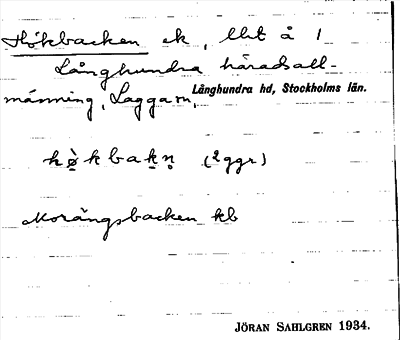 Hökbacken ek, Ubt å 1
Långhundra häradsall-
männing, Lagga sn,
Långhundra hd, Stockholms län.
hø̀kbakn̥ (2ggr)
Morängsbacken kb
JÖRAN SAHLGREN 1934.